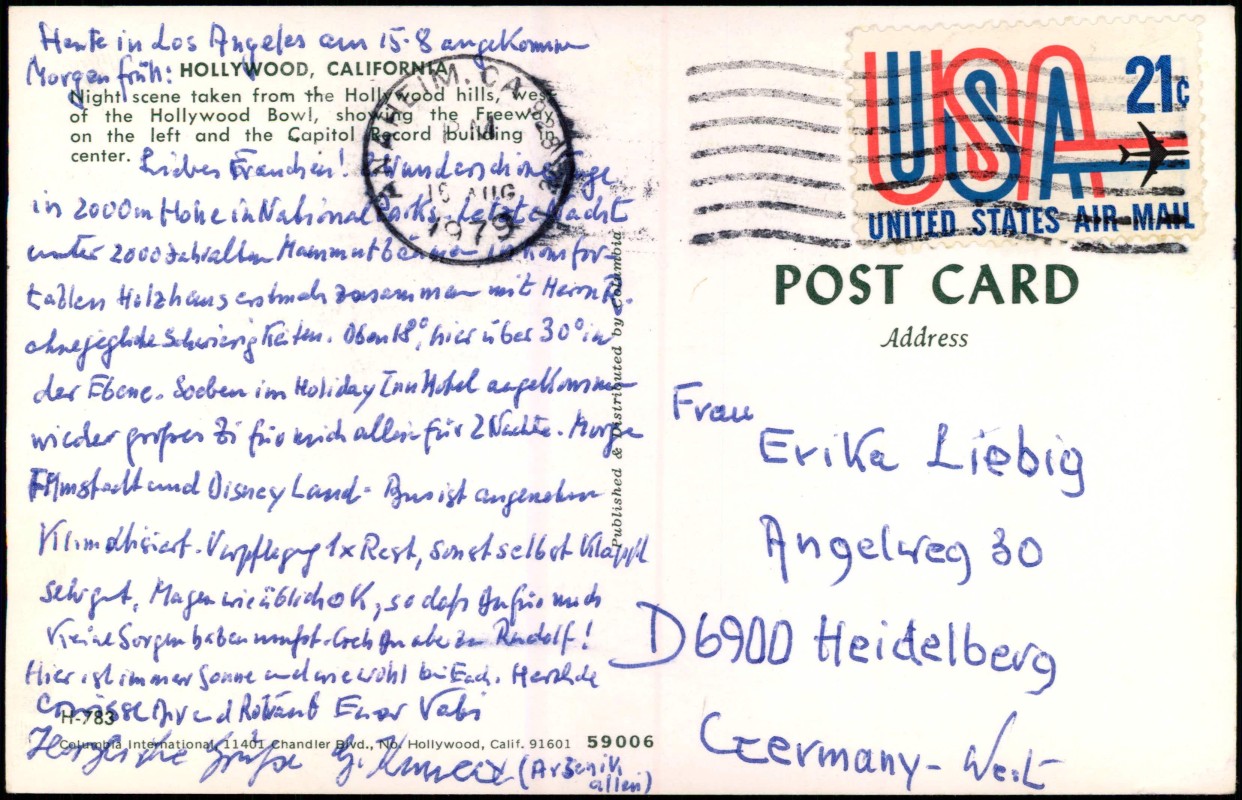 Heute in Los Angeles am 15.8 angekommen
Morgen früh:
HOLLYWOOD, CALIFORNIA
Night scene taken from the Hollywood hills, west
of the Hollywood Bowl, showing the Freeway
on the left and the Capitol Record building in
center.
Liebes Frauchen! 2 Wunderschöne Tage
in 2000m Höhe in National Parks. Letzte Nacht
unter 2000 Jahralten Mammutbäumen in komfor-
tablen Holzhaus erstmals zusammen mit Herrn K.
ohne jegliche Schwierigkeiten. Oben 18°, hier über 30° in
der Ebene. Soeben im Holiday Inn Hotel angekommen
wieder großes Zi für mich allein für 2 Nächte. Morgen
Filmstadt und Disney Land. Bus ist angenehm
Klimatisiert. Verpflegung 1x Rest, sonst selbst klappt
sehr gut, Magen wie üblich OK, so daß Du für mich
Keine Sorgen haben mußt.
Rudolf!
Hier ist immer Sonne und wie wohl bei Euch. Herzliche
Grüsse Dir und
Euer Vati
Herzliche Grüße G.
H-783
Columbia International, 11401 Chandler Blvd., No. Hollywood, Calif. 91601
59006
Published & Distributed by Columbia
ANAHEIM, CA
PM
15 AUG
1979
USA
21c
UNITED STATES AIR MAIL
POST CARD
Address
Frau
Erika Liebig
Angelweg 30
D6900 Heidelberg
Germany-West